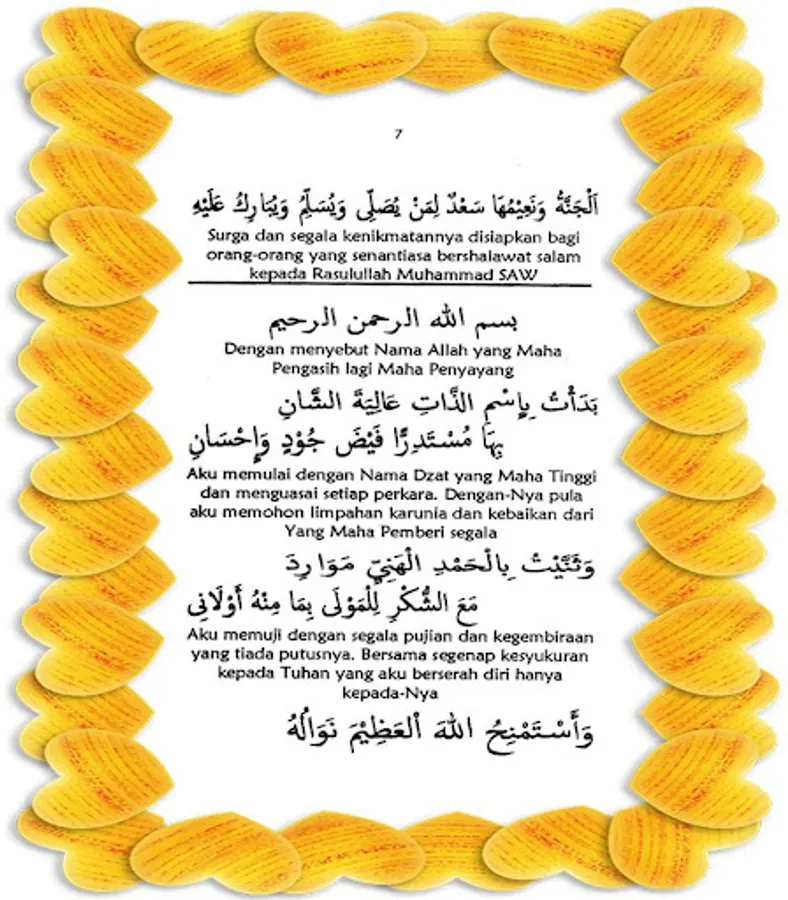 7
اَلْجَنَّةُ وَنَعِيْمُهَا سَعْدٌ لِمَنْ يُصَلِّى وَيُسَلِّمُ وَيُبَارِكُ عَلَيْهِ
Surga dan segala kenikmatannya disiapkan bagi
orang-orang yang senantiasa bershalawat salam
kepada Rasulullah Muhammad SAW
بسم الله الرحمن الرحيم
Dengan menyebut Nama Allah yang Maha
Pengasih lagi Maha Penyayang
بَدَأْتُ بِإِسْمِ الذَّاتِ عَالِيَةَ الشَّانِ
بِهَا مُسْتَدِرًّا فَيْضَ جُوْدٍ وَإِحْسَانِ
Aku memulai dengan Nama Dzat yang Maha Tinggi
dan menguasai setiap perkara. Dengan-Nya pula
aku memohon limpahan karunia dan kebaikan dari
Yang Maha Pemberi segala
وَثَنَّيْتُ بِالْحَمْدِ الْهَنِيِّ مَوَارِدَ
مَعَ الشُّكْرِ لِلْمَوْلَى بِمَا مِنْهُ أَوْلَانِى
Aku memuji dengan segala pujian dan kegembiraan
yang tiada putusnya. Bersama segenap kesyukuran
kepada Tuhan yang aku berserah diri hanya
kepada-Nya
وَأَسْتَمْنِحُ اللهَ الْعَظِيْمَ نَوَالُهُ